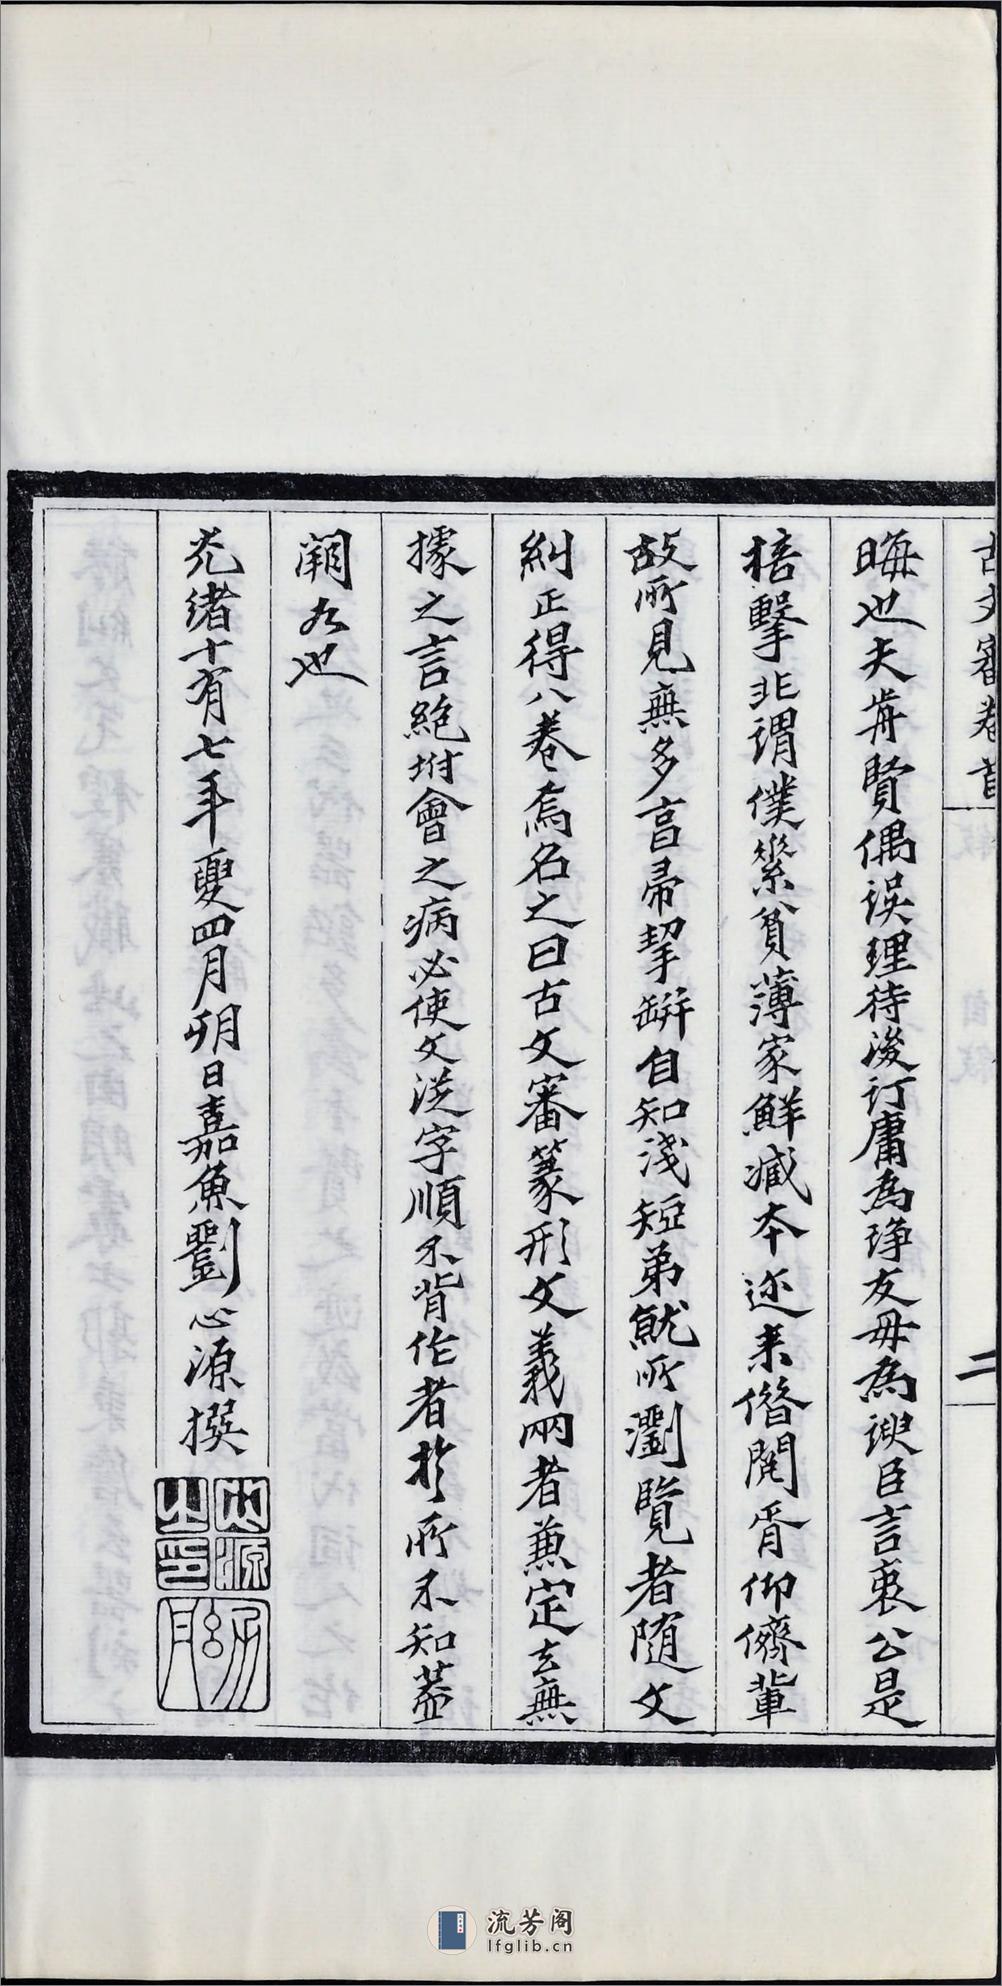 古文審卷首
二
晦也夫歬賢偶誤理待後訂庸為諍友毋為諛臣言衷公是
掊擊非謂僕素貧薄家鮮臧本近來僭閱胥仰儕輩
故所見無多言帚挈缾自知淺短弟就所瀏覽者隨文
糾正得八卷焉名之曰古文審篆形文義兩者兼定去無
據之言絶坿會之病必使文从字順不背作者於所不知葢
闕如也
光緒十有七年夏四月朔日嘉魚劉心源撰
心源之印
流芳阁
lfglib.cn